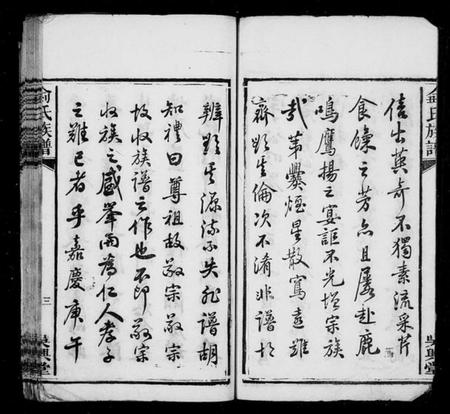 俞氏族譜
倍出英奇不獨素流采芹
食餼之芳亦且屢赴鹿
鳴鷹揚之宴詎不光增宗族
哉第爨煙星散窵遠難
齊欲其倫次不淆非譜何
吳興堂
辨欲其源流不失非譜胡
知禮曰尊祖故敬宗敬宗
故收族譜之作也不即敬宗
收族之感舉而為仁人孝子
之難已者乎嘉慶庚午
俞氏族譜
三
吳興堂